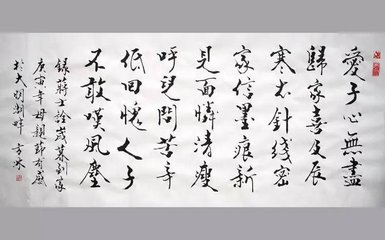 愛子心無盡
歸家喜及辰
寒衣針綫密
家信墨痕新
見面憐清瘦
呼兒問苦辛
低回愧人子
不敢嘆風塵
錄蔣士詮歲暮到家
庚寅年母親節有感
於大明湖畔